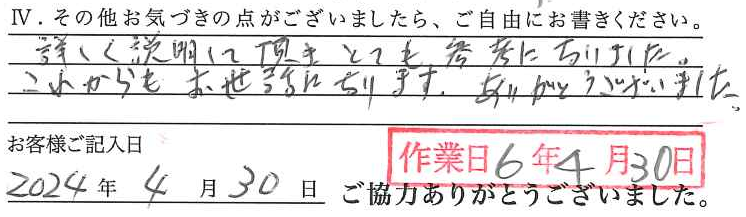 Ⅳ．その他お気づきの点がございましたら、ご自由にお書きください。
詳しく説明して頂き とても 参考になりました。
これからも お世話になります。ありがとうございました。
お客様ご記入日
作業日6年4月30日
2024年 4月30日 ご協力ありがとうございました。